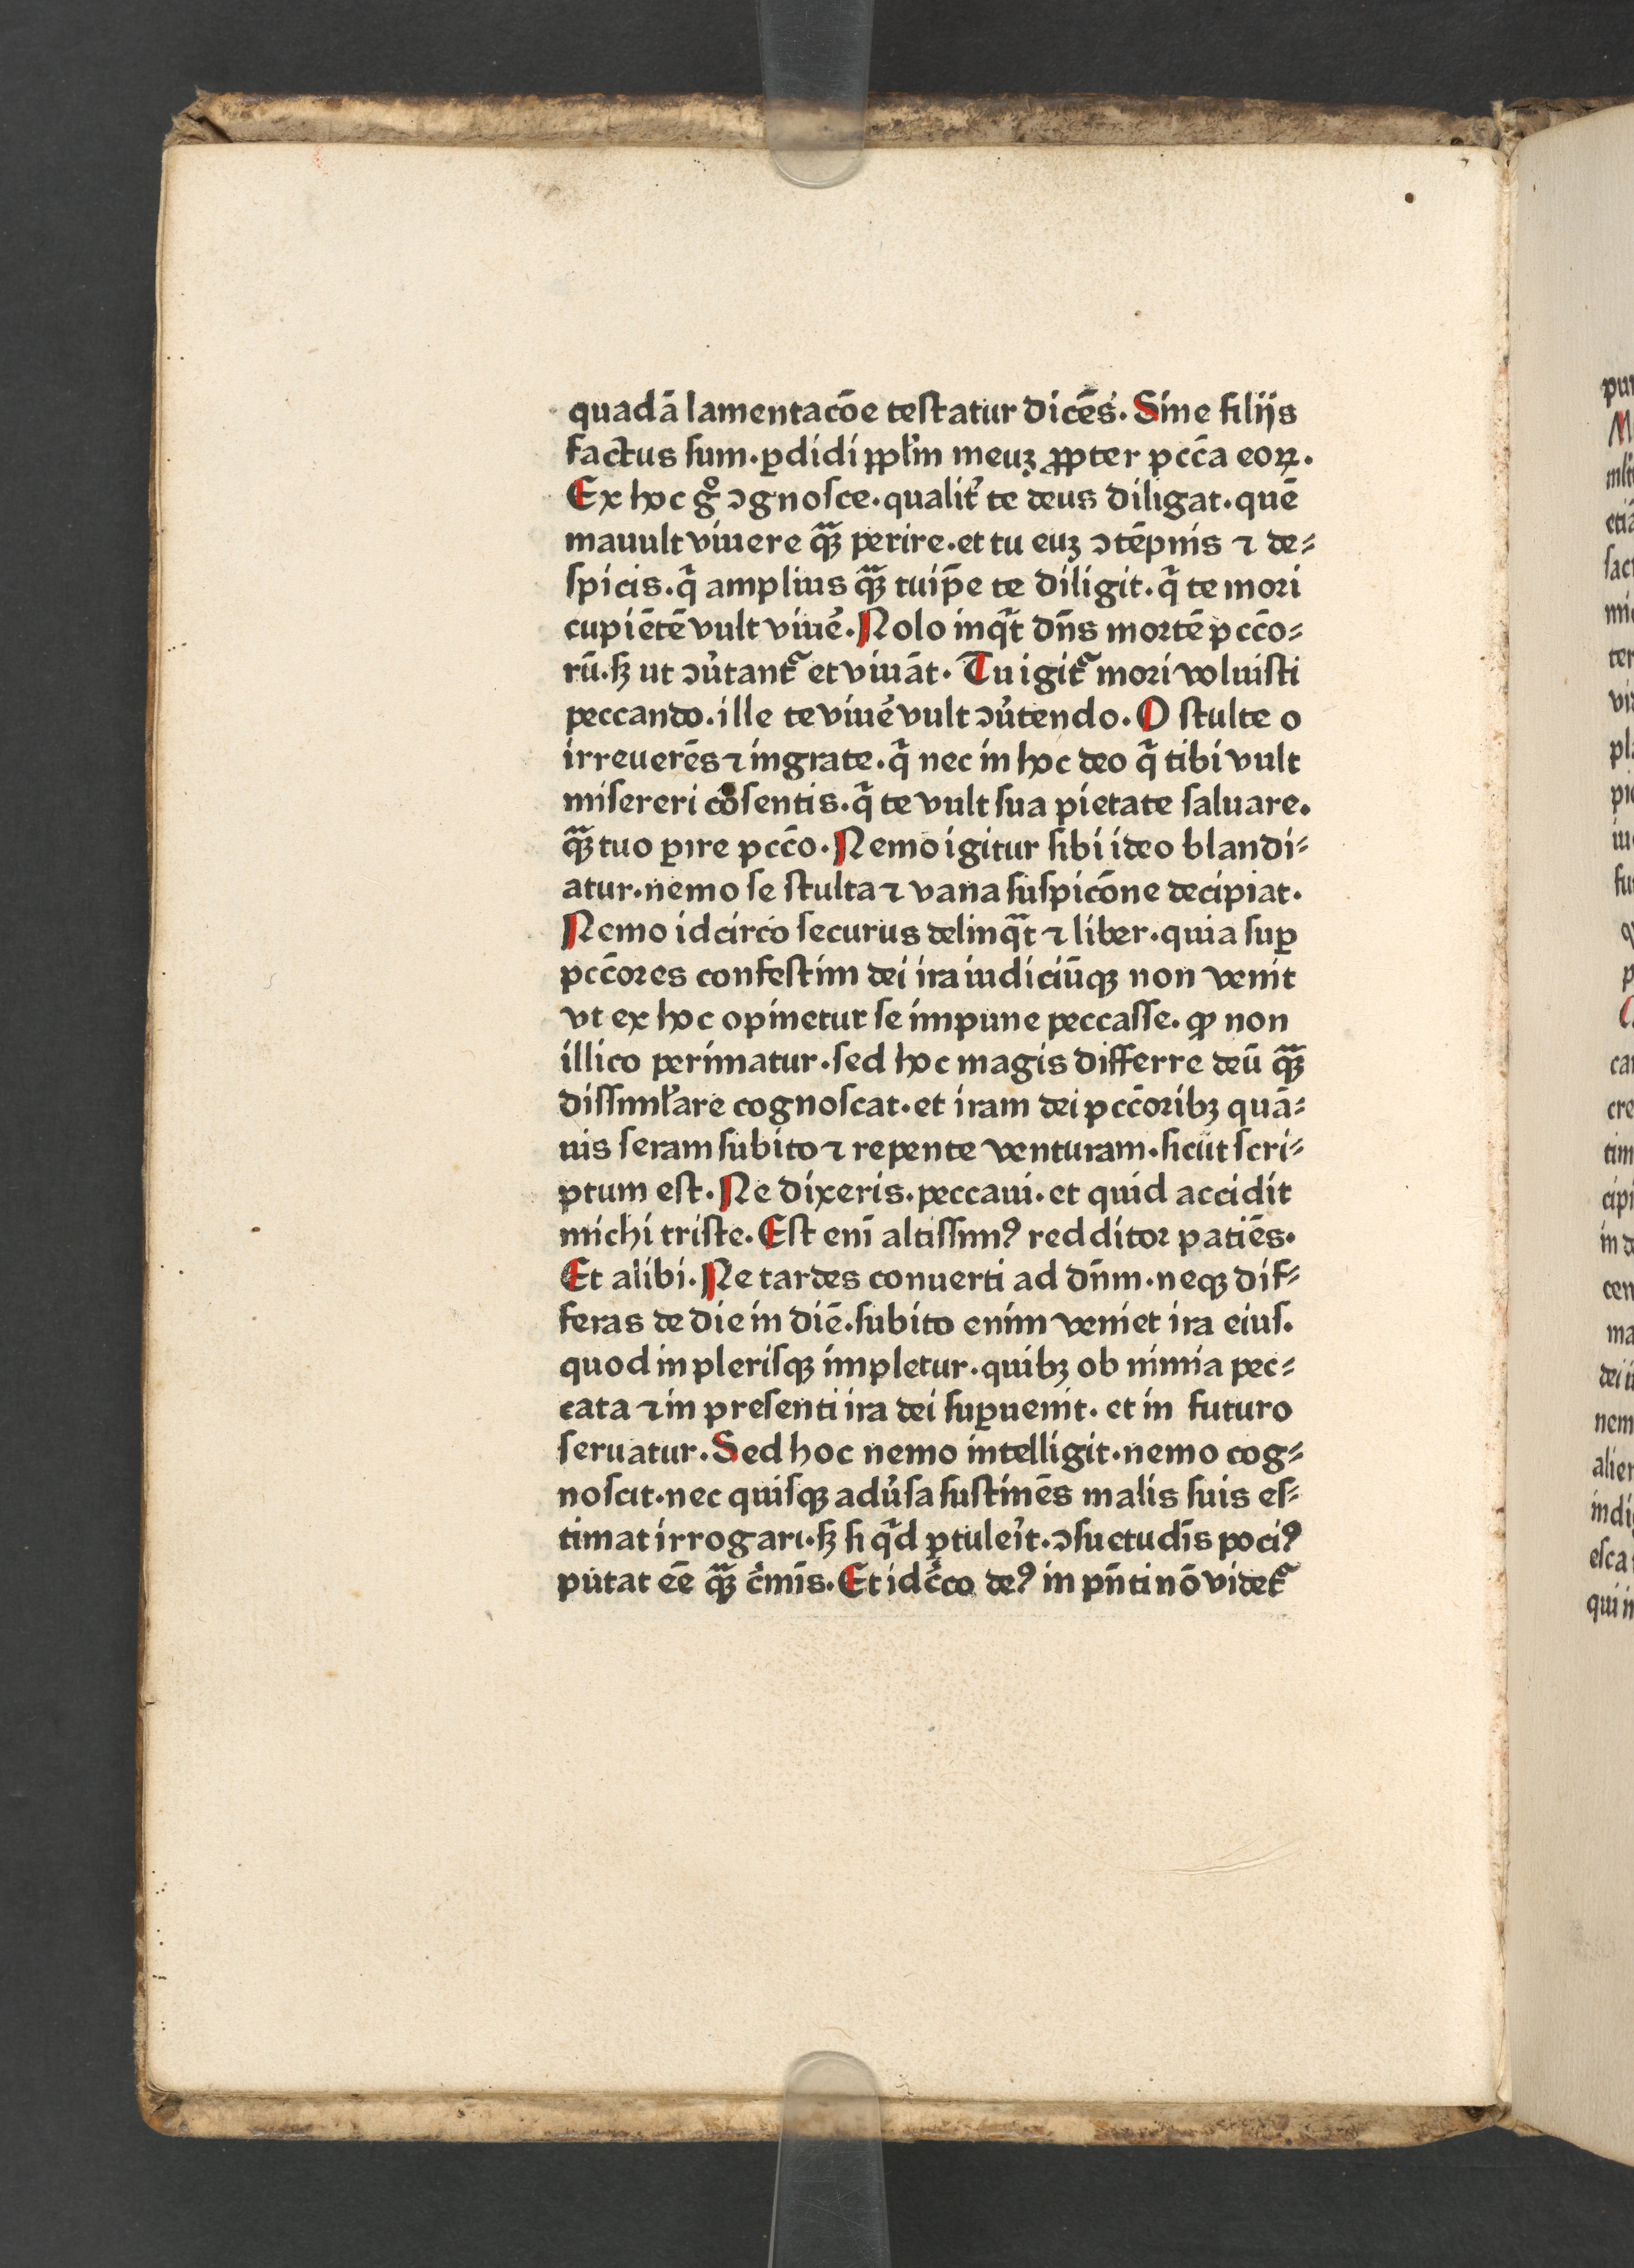 quadā lamentacōe testatur dicēs. Sine filijs
factus sum. ꝑdidi ppl̄m meuꝫ ꝓpter pccā eoꝝ.
Ex hoc gͦ ɔgnosce. qualit̉ te deus diligat. quē
mauult viuere qͣꝫ perire. et tu euꝫ ɔtēpnis ⁊ de⸗
spicis. qͥ amplius qͣꝫ tuip̄e te diligit. qͥ te mori
cupiētē vult viue᷑. Nolo inqͥt dn̄s mortē pccō⸗
rū. sꝫ ut ɔu̓tant᷑ et viuāt. Tu igit᷑ mori voluisti
peccando. ille te viue᷑ vult ɔu̓tendo. O stulte o
irreuerēs ⁊ ingrate. qͥ nec in hoc deo qͥ tibi vult
misereri cōsentis. qͥ te vult sua pietate saluare.
qͣꝫ tuo ꝑire pccō. Nemo igitur sibi ideo blandi⸗
atur. nemo se stulta ⁊ vana suspicōne decipiat.
Nemo idcirco securus delinqͣt ⁊ liber. quia suꝑ
pccōres confestim dei ira iudiciūqꝫ non venit
vt ex hoc opinetur se impune peccasse. ꝙ non
illico perimatur. sed hoc magis differre deū qͣꝫ
dissimĺare cognoscat. et iram dei pccōribꝫ quā⸗
uis seram subito ⁊ repente venturam. sicut scri⸗
ptum est. Ne dixeris. peccaui. et quid accidit
michi triste. Est enī altissimꝰ redditor patiēs.
Et alibi. Ne tardes conuerti ad dn̄m. neqꝫ dif⸗
feras de die in diē. subito enim veniet ira eius.
quod in plerisqꝫ impletur. quibꝫ ob nimia pec⸗
cata ⁊ in presenti ira dei suꝑuenit. et in futuro
seruatur. Sed hoc nemo intelligit. nemo cog⸗
noscit. nec quisqꝫ adu̓sa sustinēs malis suis es⸗
timat irrogari. sꝫ si qͥd ꝑtulei̓t. ɔsuetudīs pociꝰ
putat eē qͣꝫ c̓mīs. Et idc̓co deꝰ in pn̄ti nō videt᷑